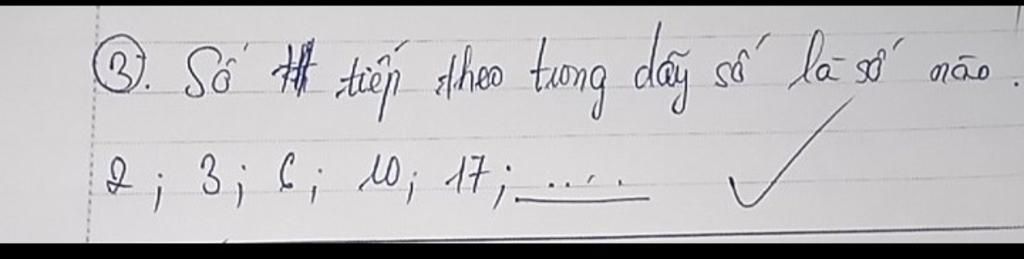 ③. Số tiếp theo trong dãy số là số nào.
2; 3; 6; 10; 17; .....